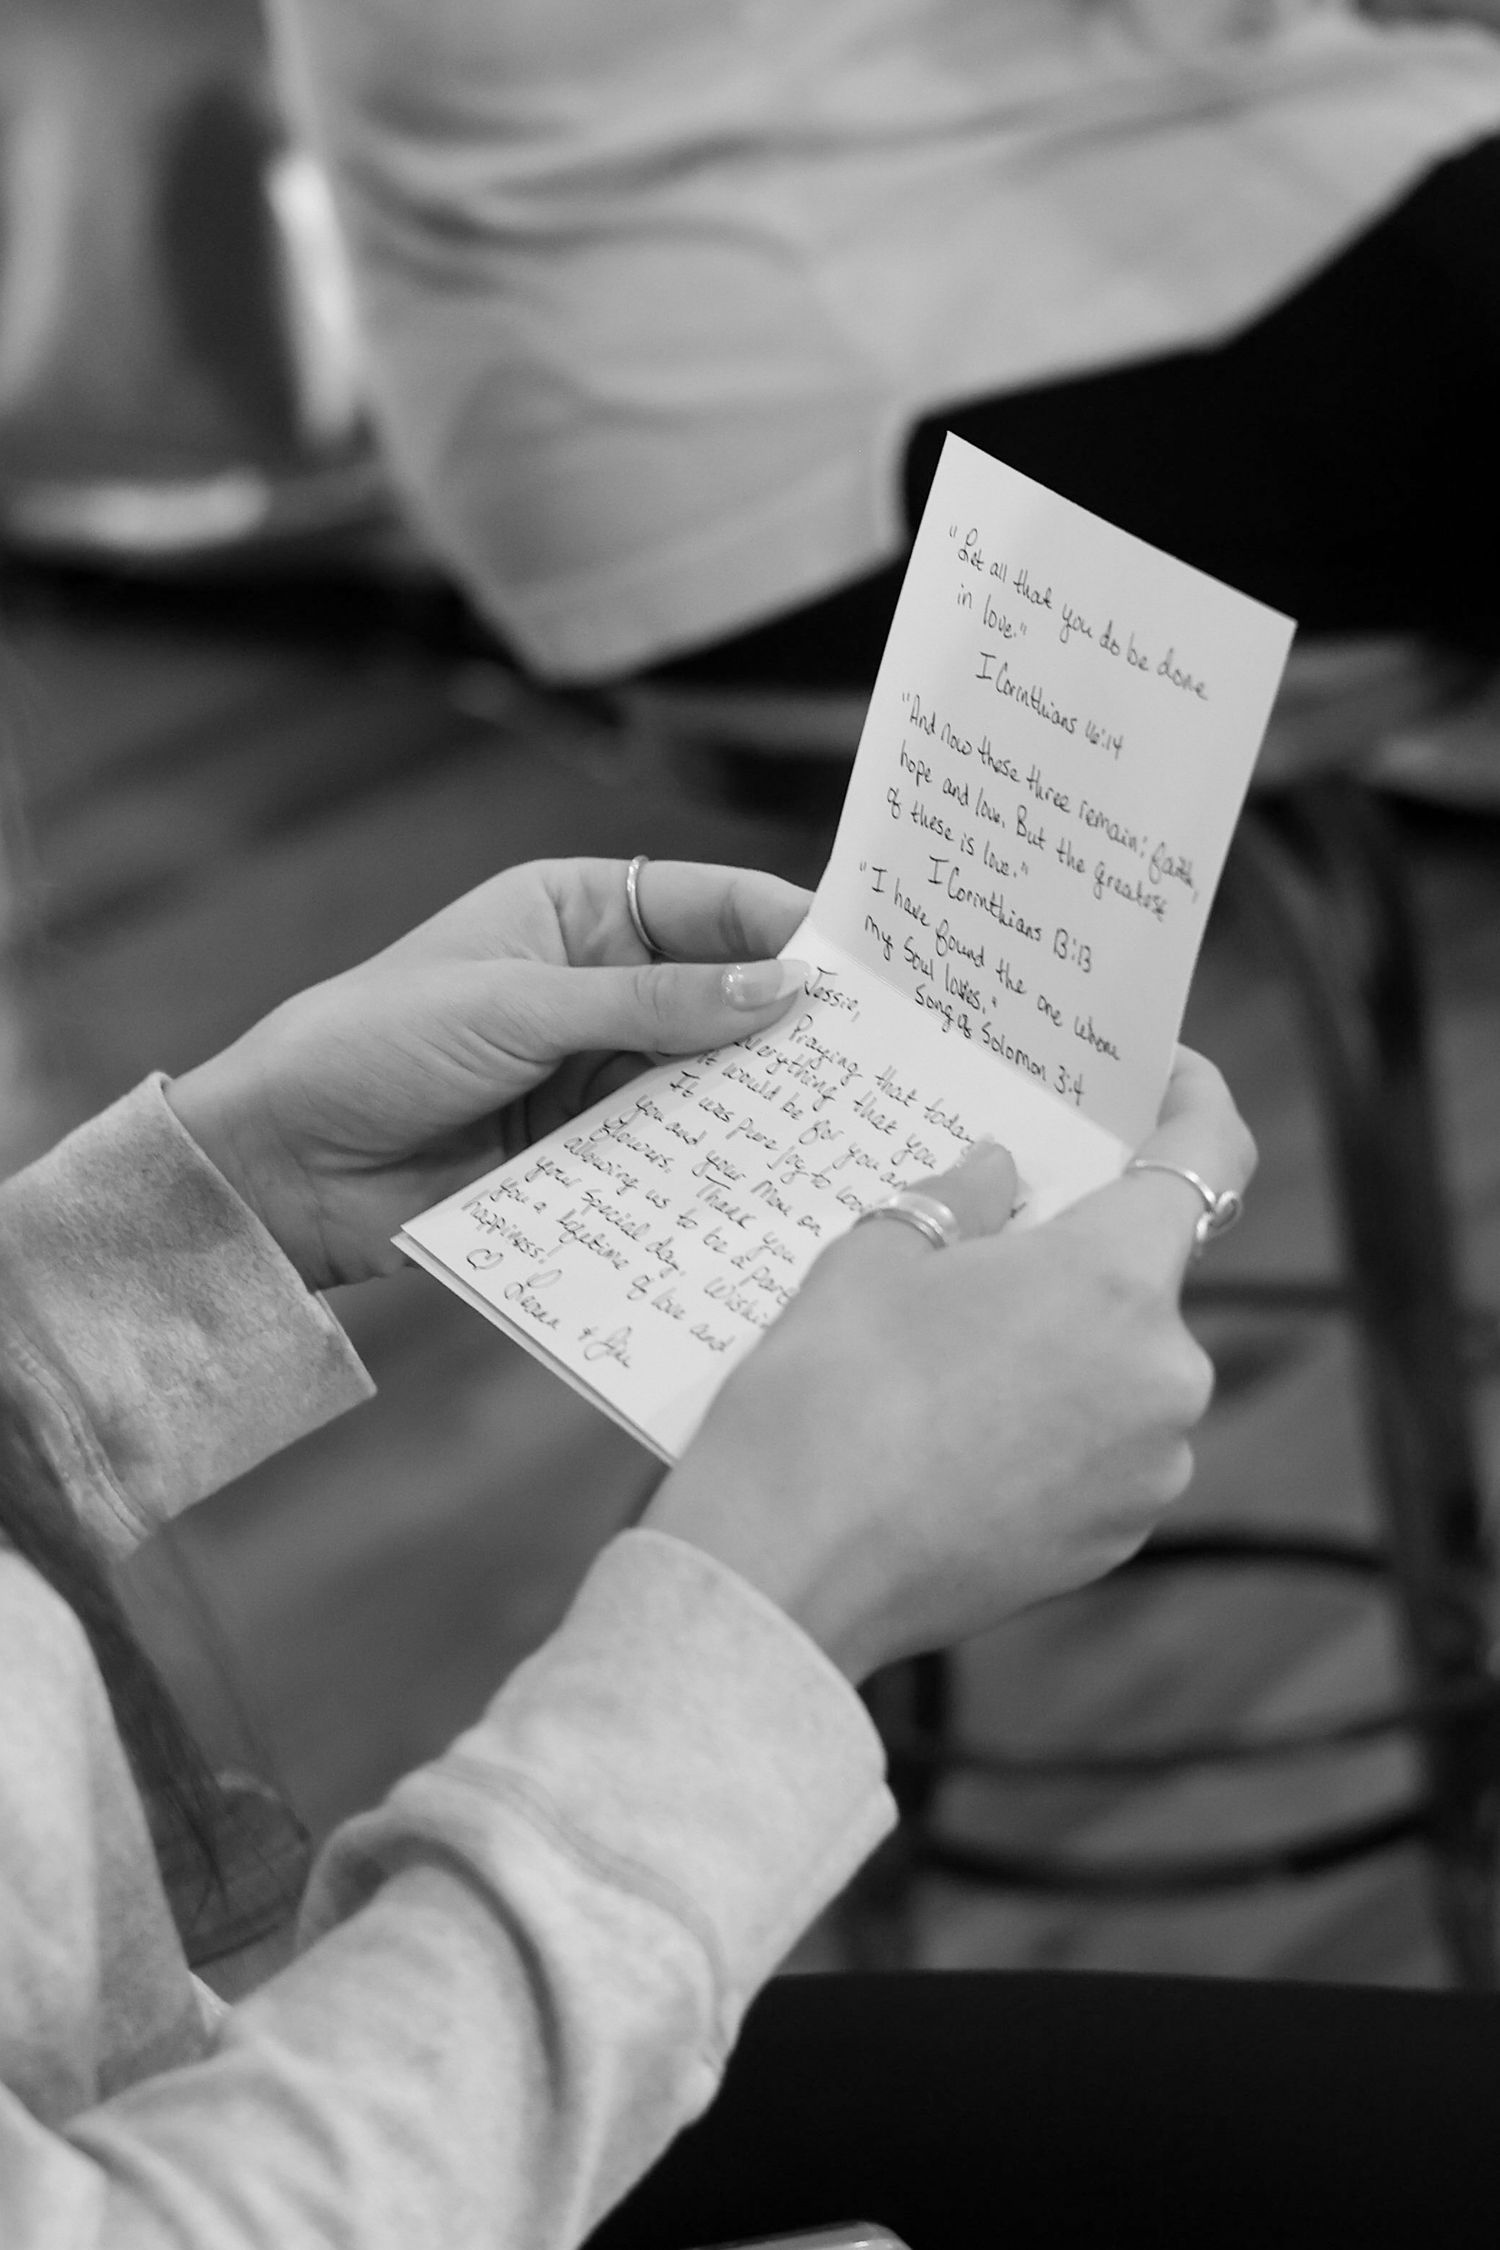 "Let all that you do be done
in love."
I Corinthians 16:14
"And now these three remain: faith,
hope and love. But the greatest
of these is love."
I Corinthians 13:13
"I have found the one whom
my soul loves."
Song of Solomon 3:4
Jessie,
Praying that today
everything that you
it would be for you
It was pure joy to
you and your Mom on
flowers. Thank you
allowing us to be a part
your special day.
you a lifetime of love and
happiness!
♡